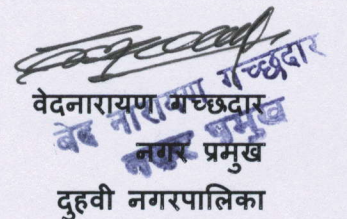 वेदनारायण गच्छदार
वेद नारायण गच्छदार
नगर प्रमुख
नगर प्रमुख
दुहवी नगरपालिका